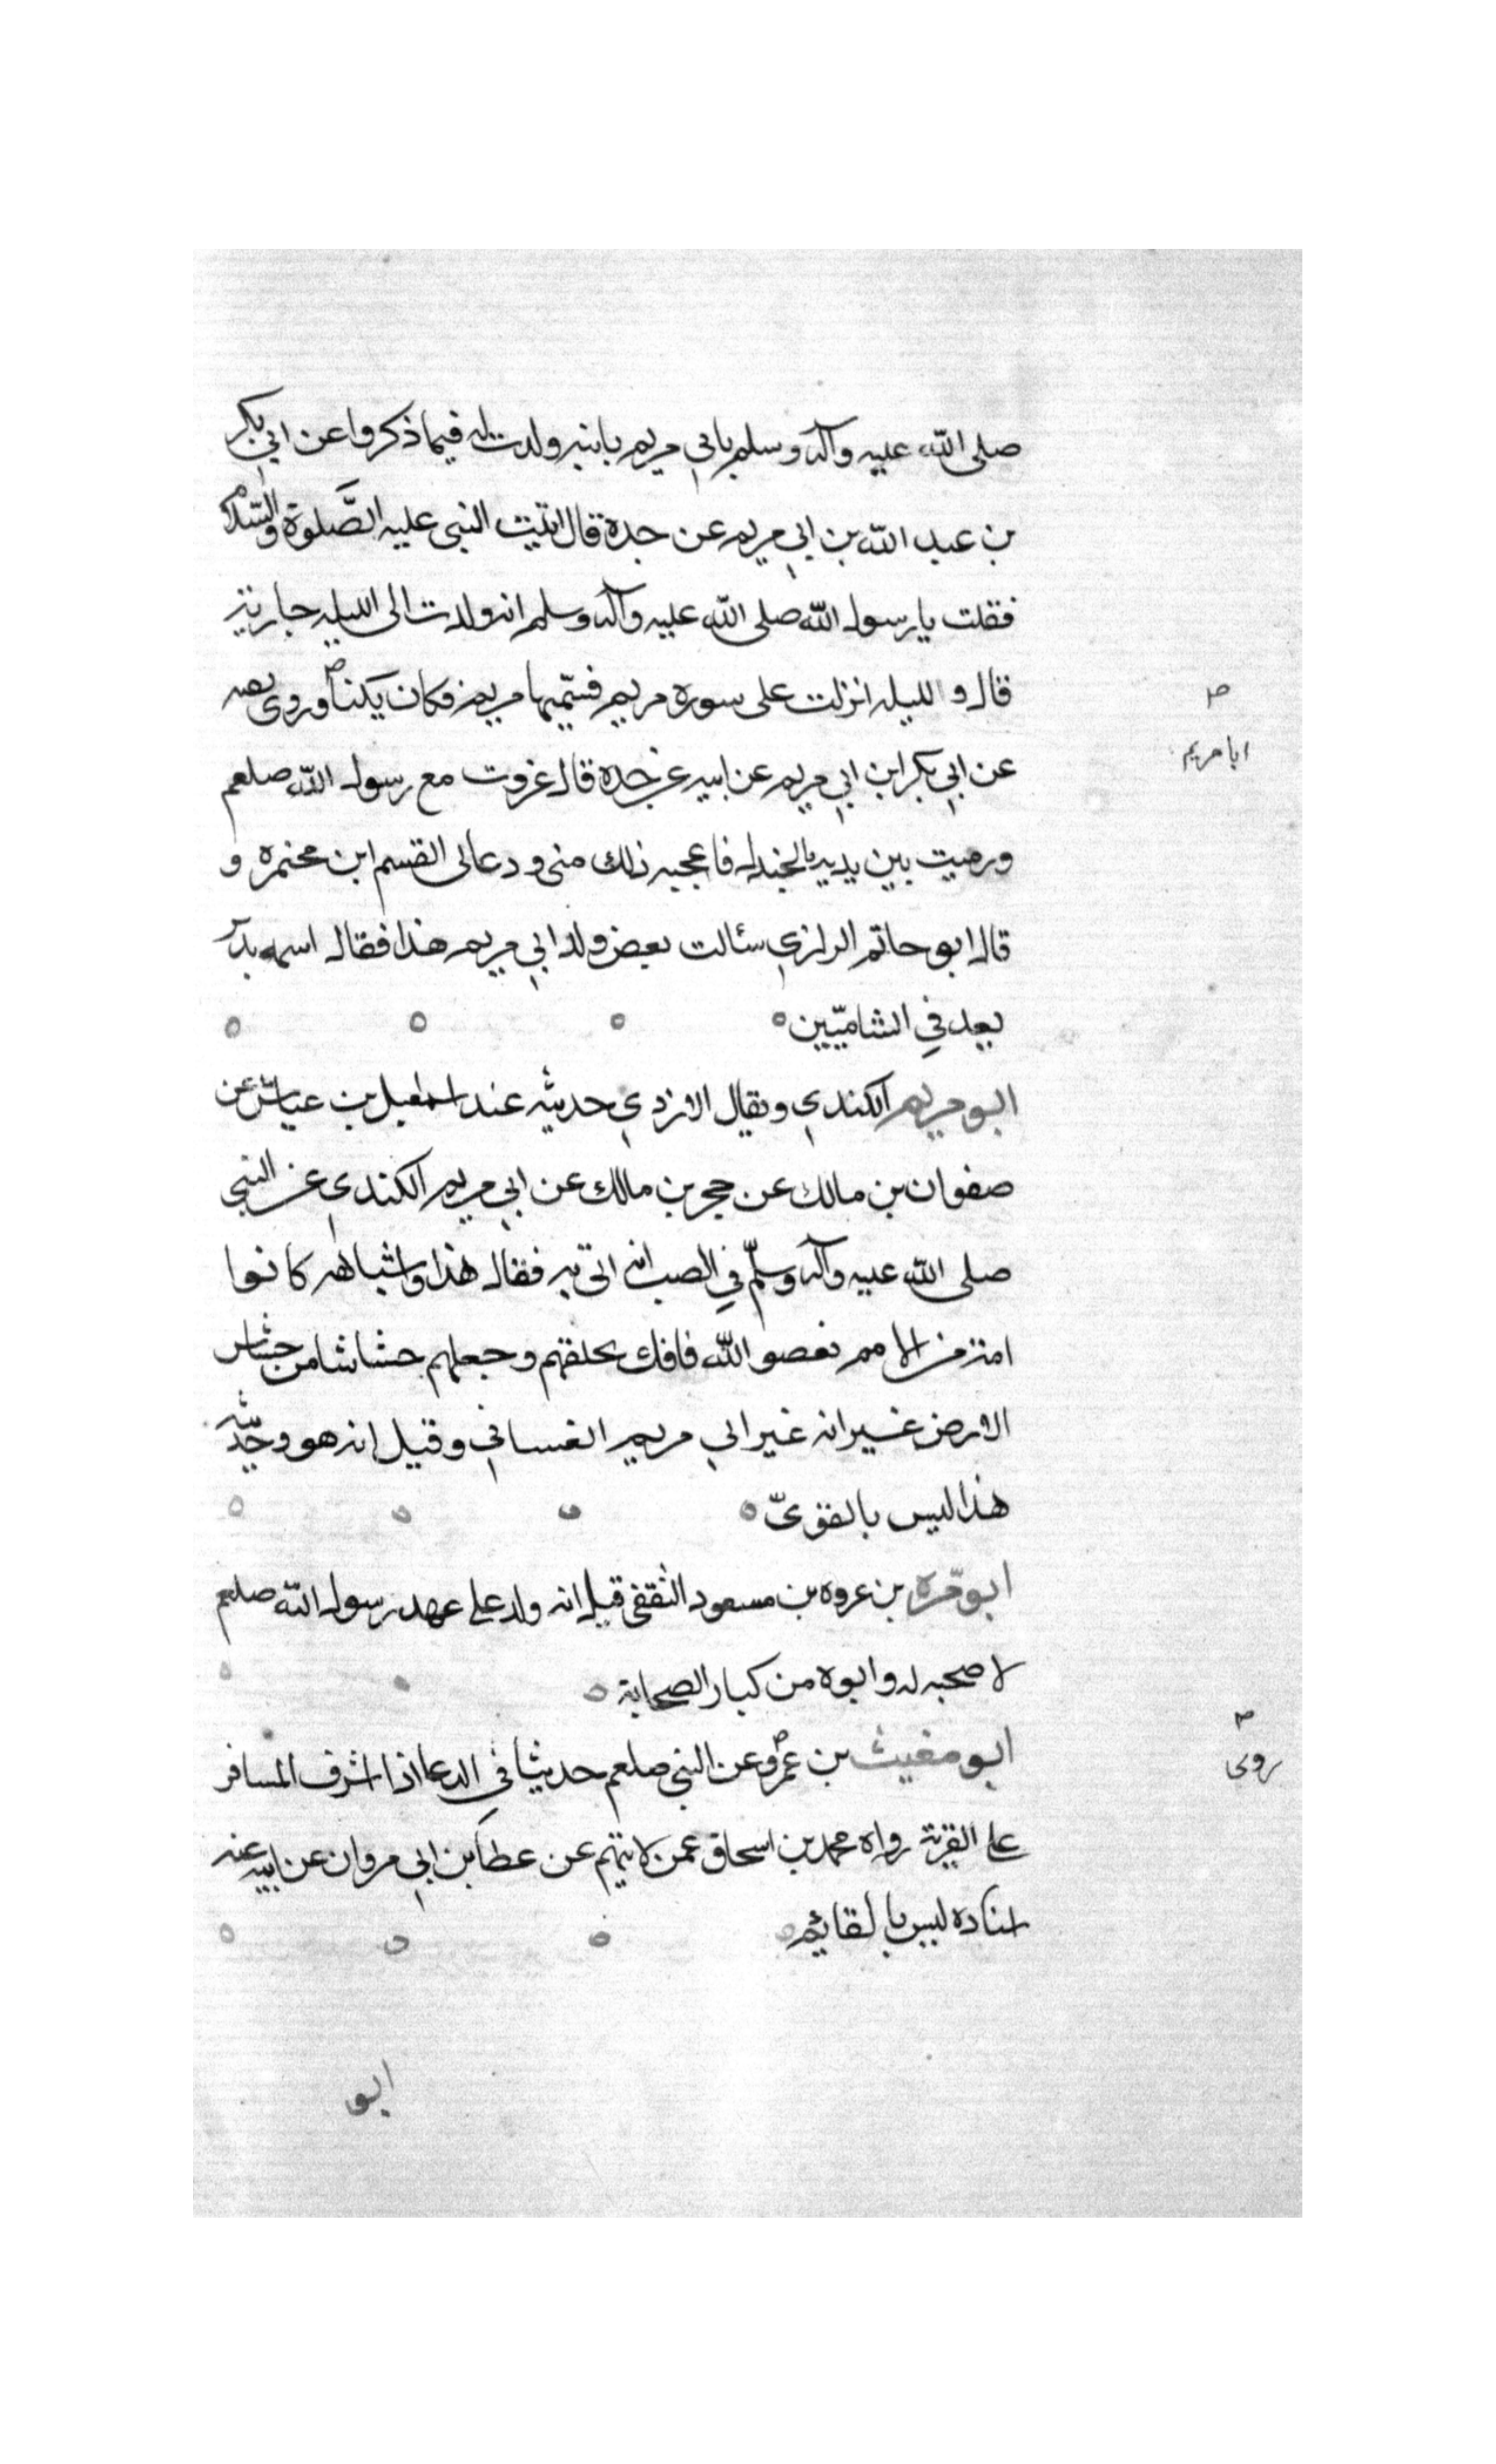 صلى الله عليه وآله وسلم بابي مريم بابنه ولدت له فيما ذكروا عن ابي بكر
بن عبد الله بن ابي مريم عن جده قال اتيت النبى عليه الصَّلوة والسّلام
فقلت يا رسول الله صلى الله عليه وآله وسلم انه ولدت الى الليله جارية
قال والليله انزلت على سورة مريم فسمّيها مريم فكان يكنا وروى بعيه
ابا مريم
عن ابي بكر ابن ابي مريم عن ابيه عن جده قال غزوت مع رسول الله صلعم
ورميت بين يديه بالجندل فاعجبه ذلك منى ودعا لى القسم ابن مخمره و
قال ابو حاتم الرازي سئالت بعض ولد ابي مريم هذا فقال اسمه بدر
يعد في الشاميّين
ابو مريم الكندي ويقال الازدي حديثه عند اسمعيل بن عياش عن
صفوان بن مالك عن حجر بن مالك عن ابي مريم الكندي عن النبي
صلى الله عليه وآله وسلّم في الصب انه اتى به فقال هذا واشباهه كانوا
امة من الامم فعصوا الله فافك بخلقهم وجعلهم حشاشا من حشاش
الارض غير انه غير ابي مريم الغساني وقيل انه هو وحديثه
هذا ليس بالقوىّ
ابو مّره بن عروه بن مسعود الثقفى قيل انه ولد على عهد رسول الله صلعم
لا صحبه له وابوه من كبار الصحابة
ابو مغيث بن عمرو عن النبي صلعم حديثا في الدعا اذا اشرف المسافر
روى
على القرية رواه محمد بن اسحاق عمن لا يتهم عن عطا بن ابي مروان عن ابيه عنه
اسناده ليس بالقايم
ابو